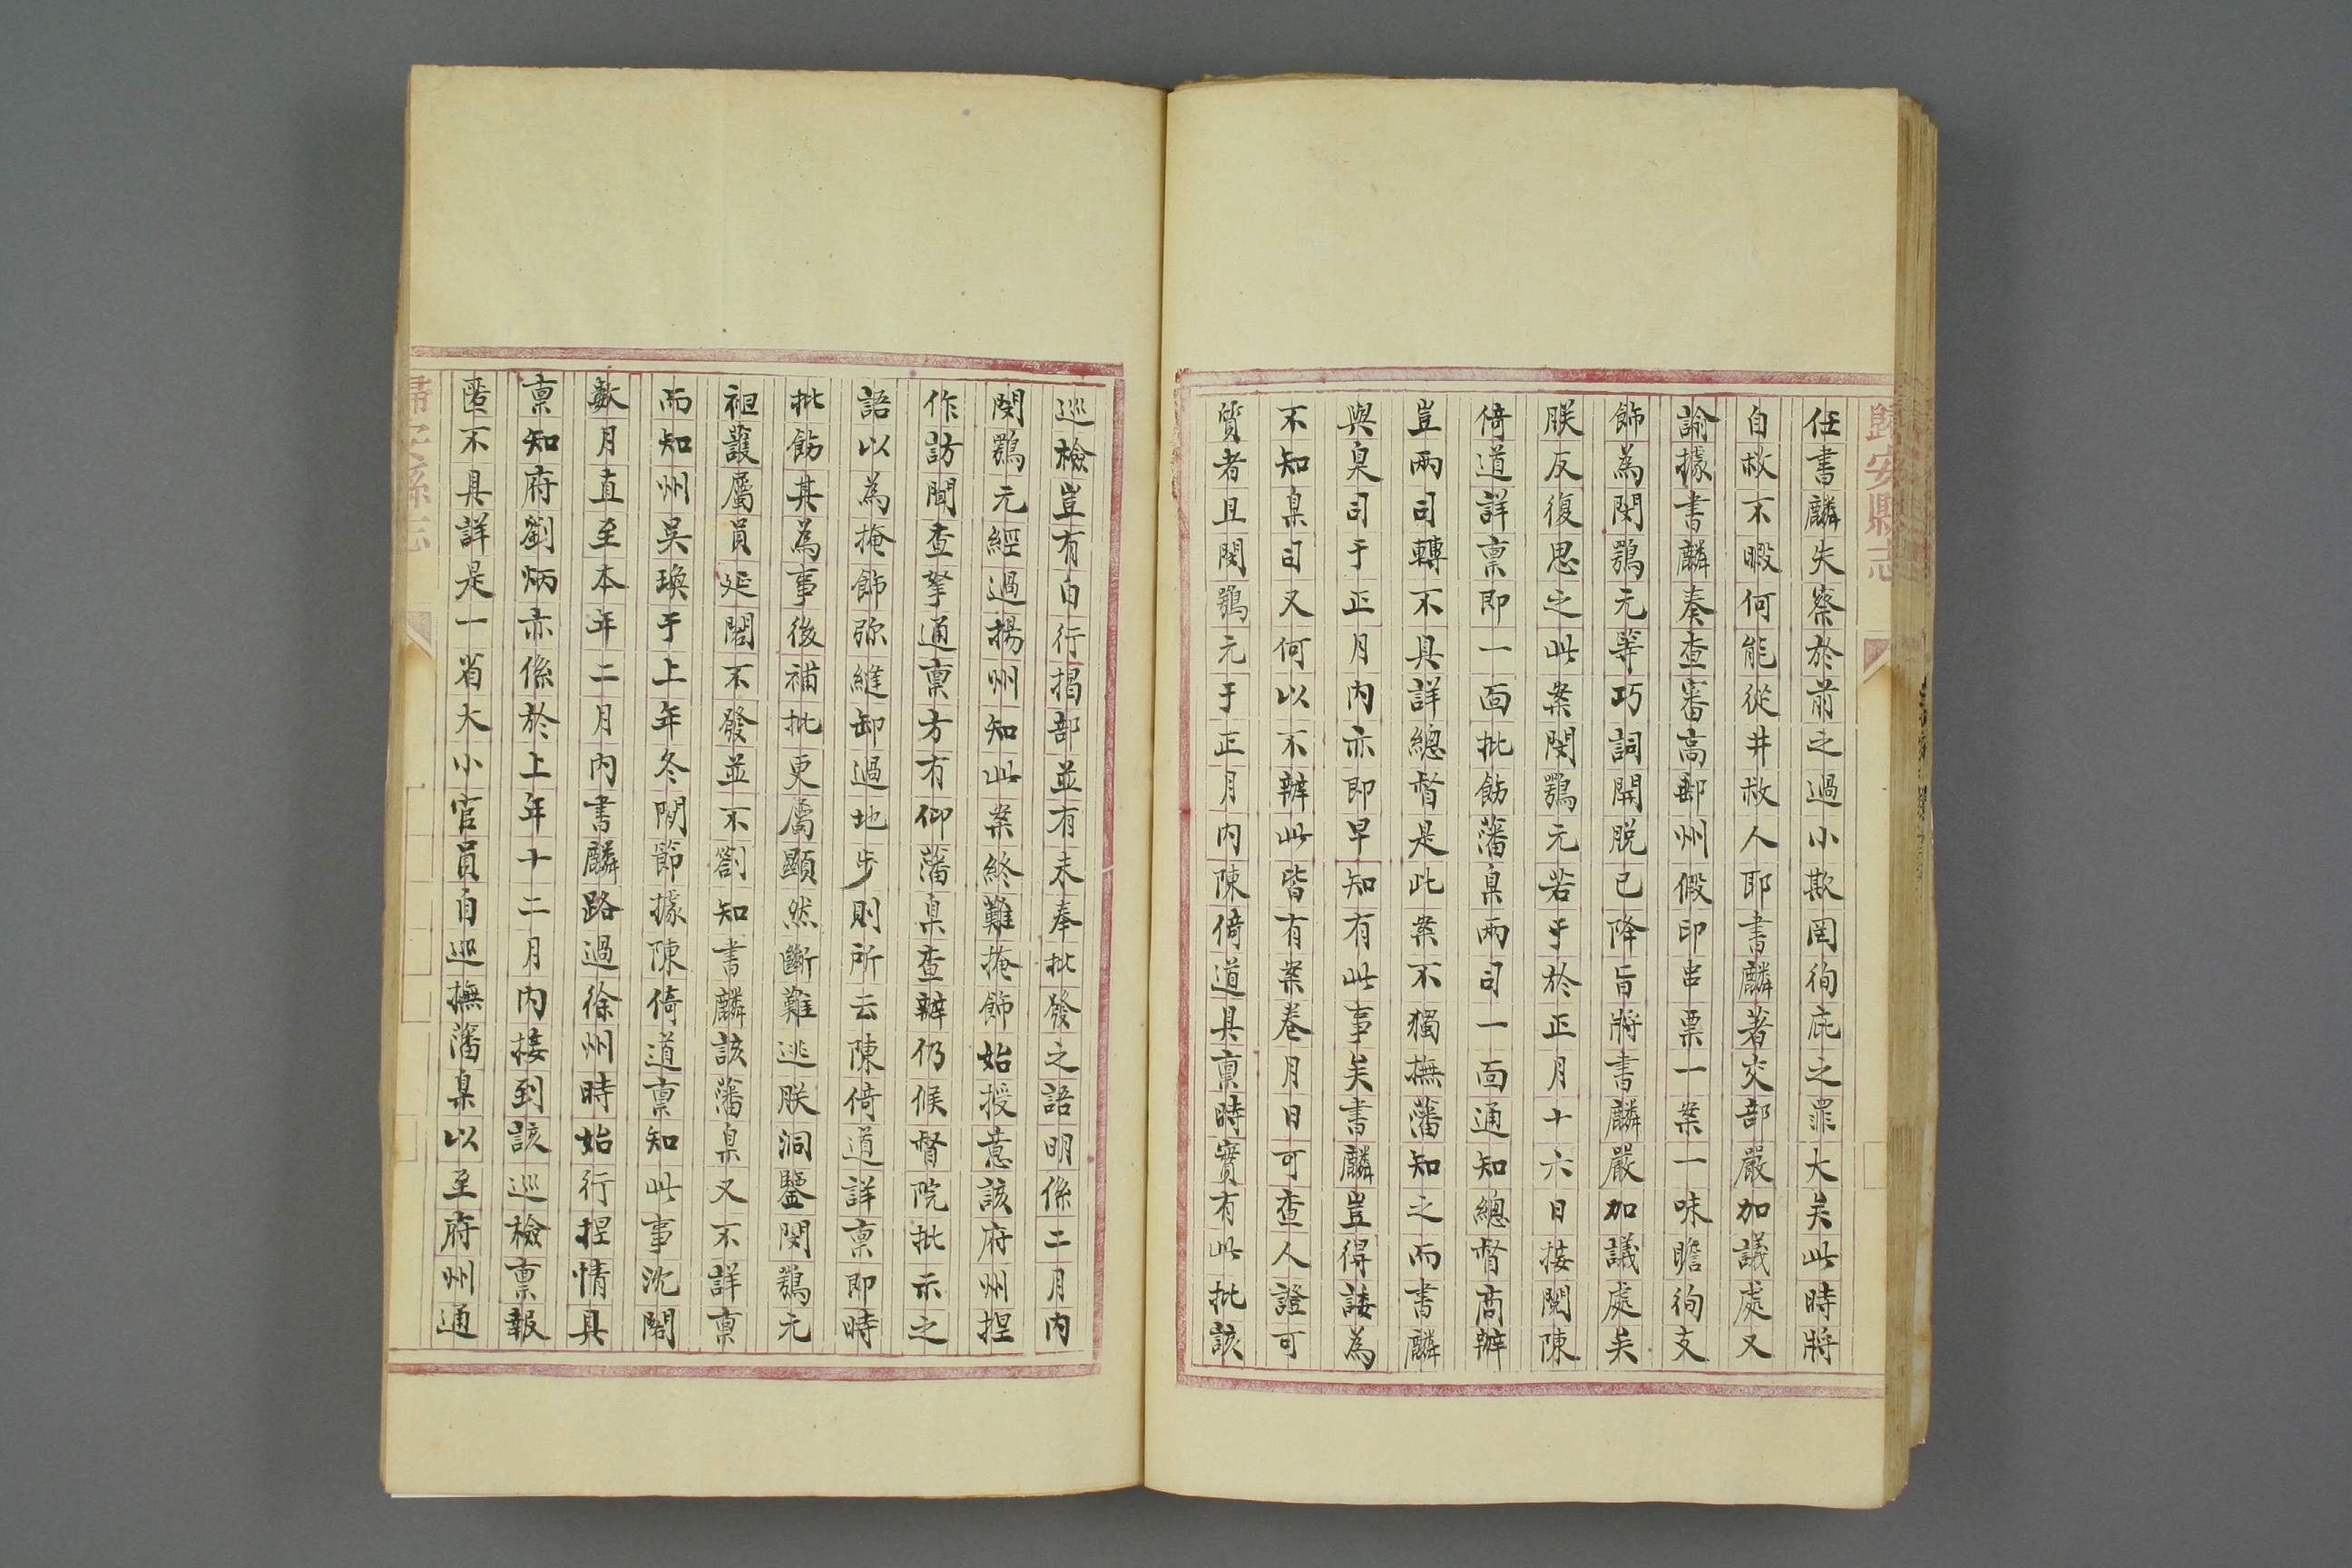 歸安縣志
任書麟失察於前之過小欺罔徇庇之罪大矣此時將
自救不暇何能從井救人耶書麟著交部嚴加議處又
諭據書麟奏查審高郵州假印串票一案一味瞻徇支
飾為閔鶚元等巧詞開脫已降旨將書麟嚴加議處矣
朕反復思之此案閔鶚元若于於正月十六日接閱陳
倚道詳禀即一面批飭藩臬兩司一面通知總督商辦
豈兩司轉不具詳總督是此案不獨撫藩知之而書麟
與臬司于正月內亦即早知有此事矣書麟豈得諉為
不知臬司又何以不辦此皆有案卷月日可查人證可
質者且閔鶚元于正月內陳倚道具禀時實有此批該
巡檢豈有自行揭部並有未奉批發之語明係二月內
閔鶚元經過揚州知此案終難掩飾始授意該府州捏
作訪聞查拏通禀方有仰藩臬查辦仍候督院批示之
語以為掩飾弥縫卸過地步則所云陳倚道詳禀即時
批飭其為事後補批更屬顯然斷難逃朕洞鑒閔鶚元
袒護屬員延閣不發並不劄知書麟該藩臬又不詳禀
而知州吳瑍于上年冬間節據陳倚道禀知此事沈閣
數月直至本年二月內書麟路過徐州時始行捏情具
禀知府劉炳亦係於上年十二月內接到該巡檢禀報
匿不具詳是一省大小官員自巡撫藩臬以至府州通